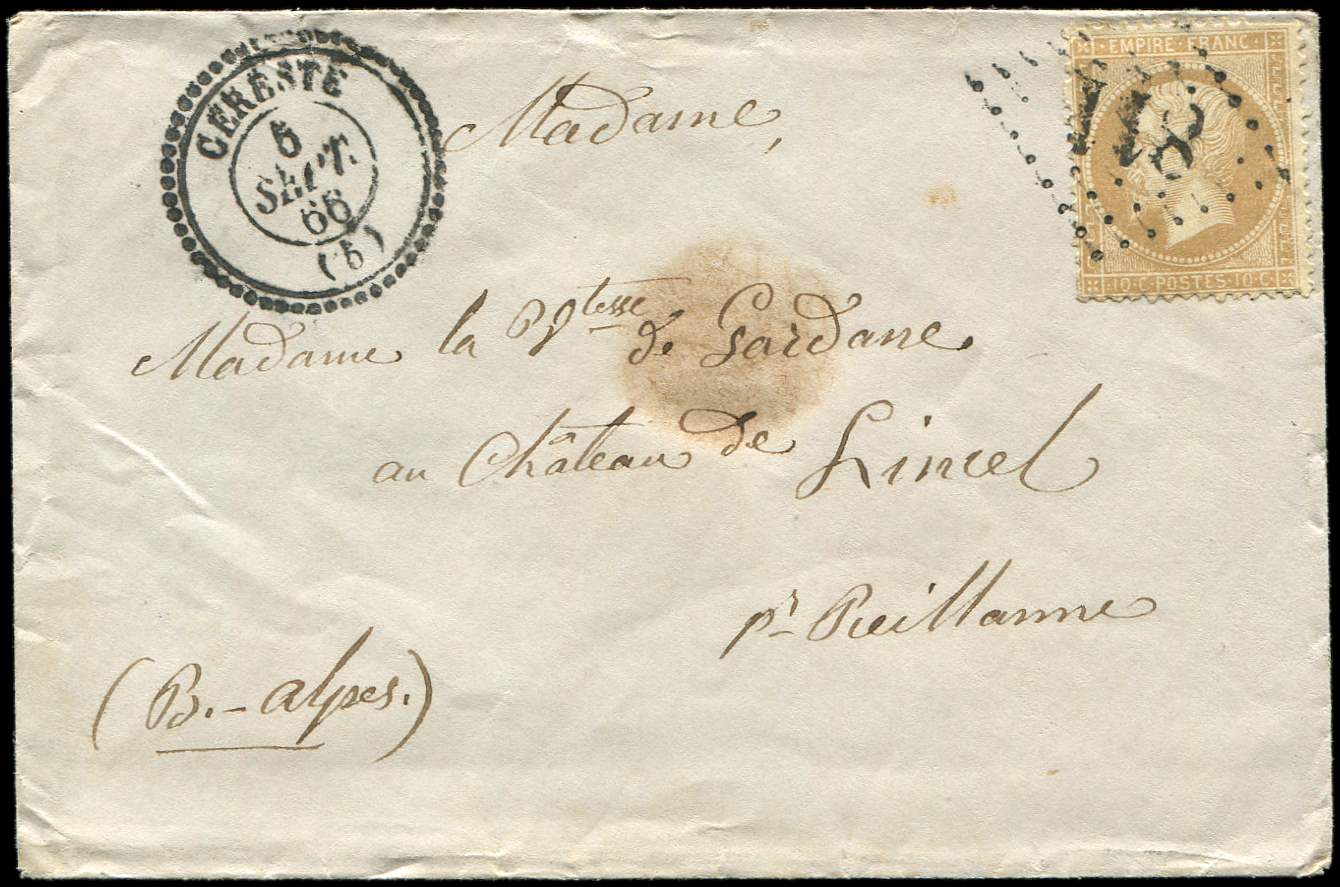 CERESTE
6
SEPT.
66
(5)
EMPIRE FRANC
10·C·POSTES·10·C·
Madame,
Madame la Vtesse de Gardane.
au Château de Lincel
pr Reillanne
(B.-alpes.)